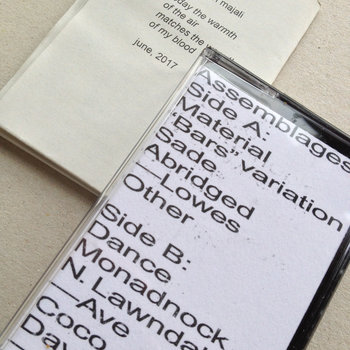 majali
day the warmth
of the air
matches the
of my blood
june, 2017
Assemblages
Side A:
Material
"Bars" variation
Sade
Abridged
—Lowes
Other
Side B:
Dance
Monadnock
N. Lawnda
—Ave
Coco
Day